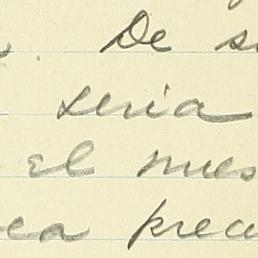 De s
seria
el mues
ca prec